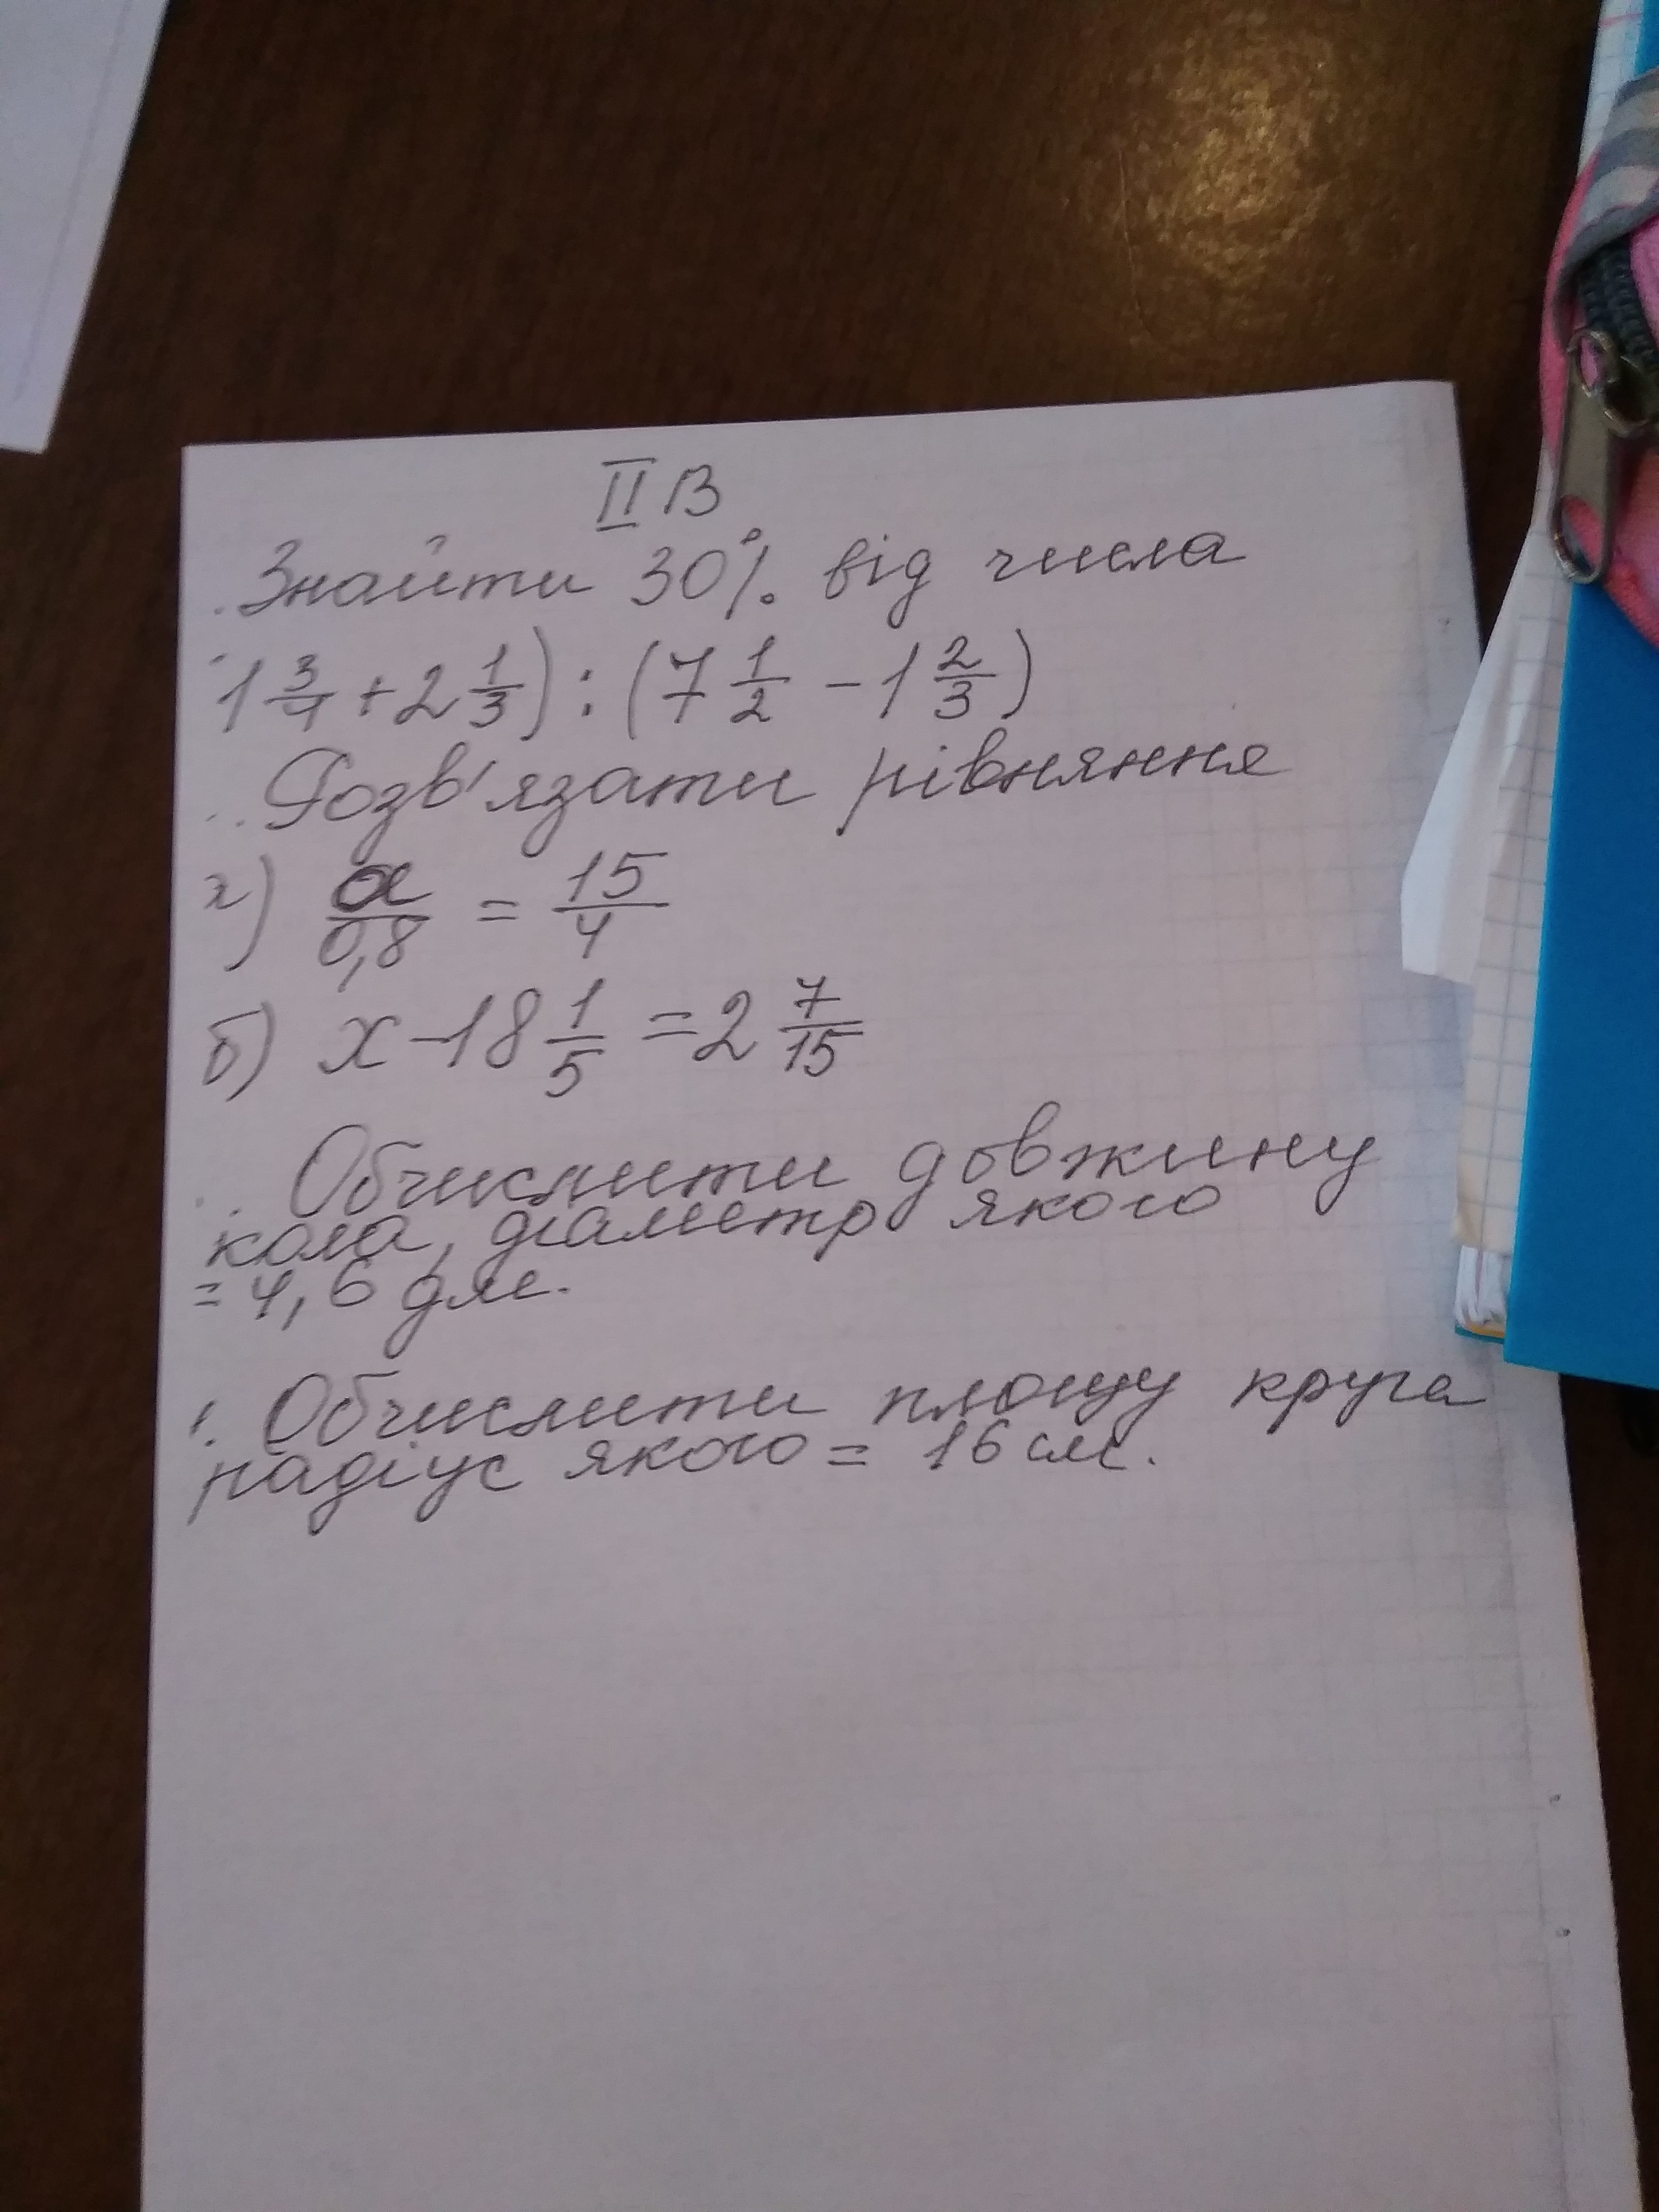 II В
Знайти 30% від числа
1 3/4 + 2 1/3) : (7 1/2 - 1 2/3)
Розв'язати рівняння
а) x/0,8 = 15/4
б) x - 18 1/5 = 2 7/15
Обчислити довжину
кола, діаметр якого
= 4,6 дм.
Обчислити площу круга
радіус якого = 16 см.